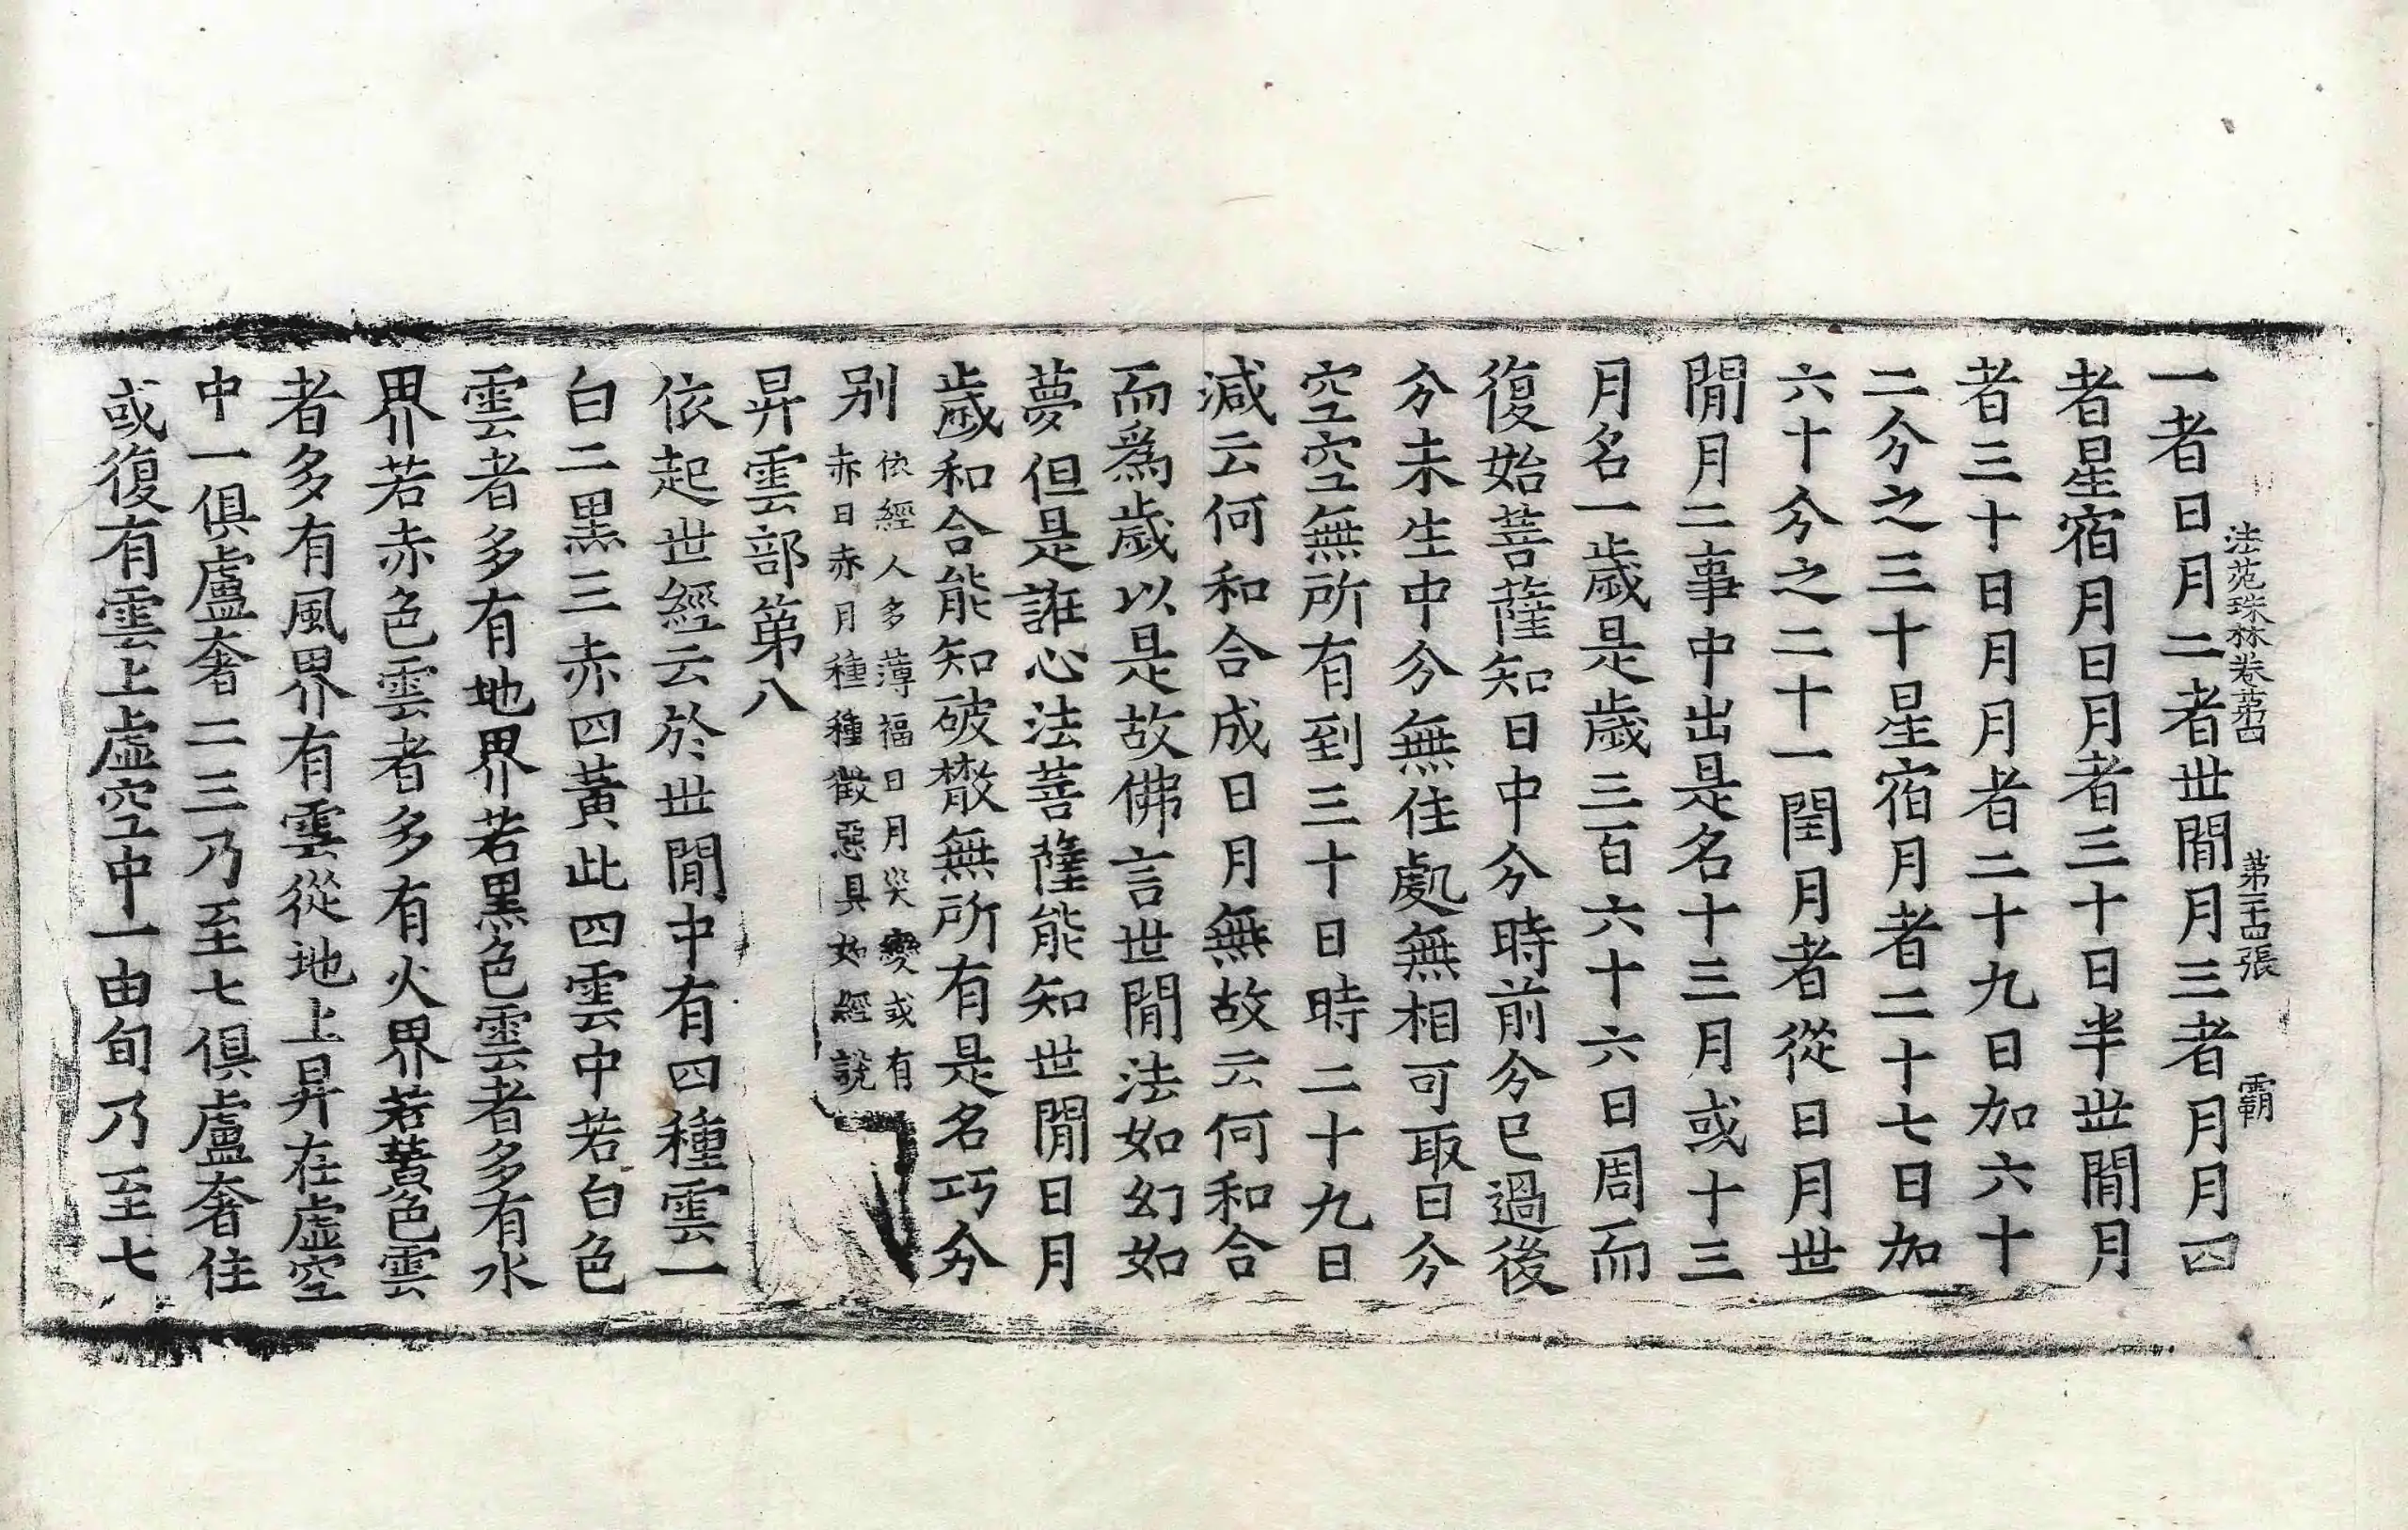 法苑珠林卷苐四 第二十四張 霸
一者日月二者世閒月三者月月四
者星宿月日月者三十日半世閒月
者三十日月月者二十九日加六十
二分之三十星宿月者二十七日加
六十分之二十一閏月者從日月世
閒月二事中出是名十三月或十三
月名一歲是歲三百六十六日周而
復始菩薩知日中分時前分已過後
分未生中分無住處無相可取日分
空空無所有到三十日時二十九日
減云何和合成日月無故云何和合
而爲歲以是故佛言世閒法如幻如
夢但是誑心法菩薩能知世閒日月
歲和合能知破散無所有是名巧分
別 依經人多薄福日月災變或有
赤日赤月種種徵惡具如經說
昇雲部第八
依起世經云於世閒中有四種雲一
白二黑三赤四黃此四雲中若白色
雲者多有地界若黑色雲者多有水
界若赤色雲者多有火界若黃色雲
者多有風界有雲從地上昇在虛空
中一俱盧奢二三乃至七俱盧奢住
或復有雲上虛空中一由旬乃至七